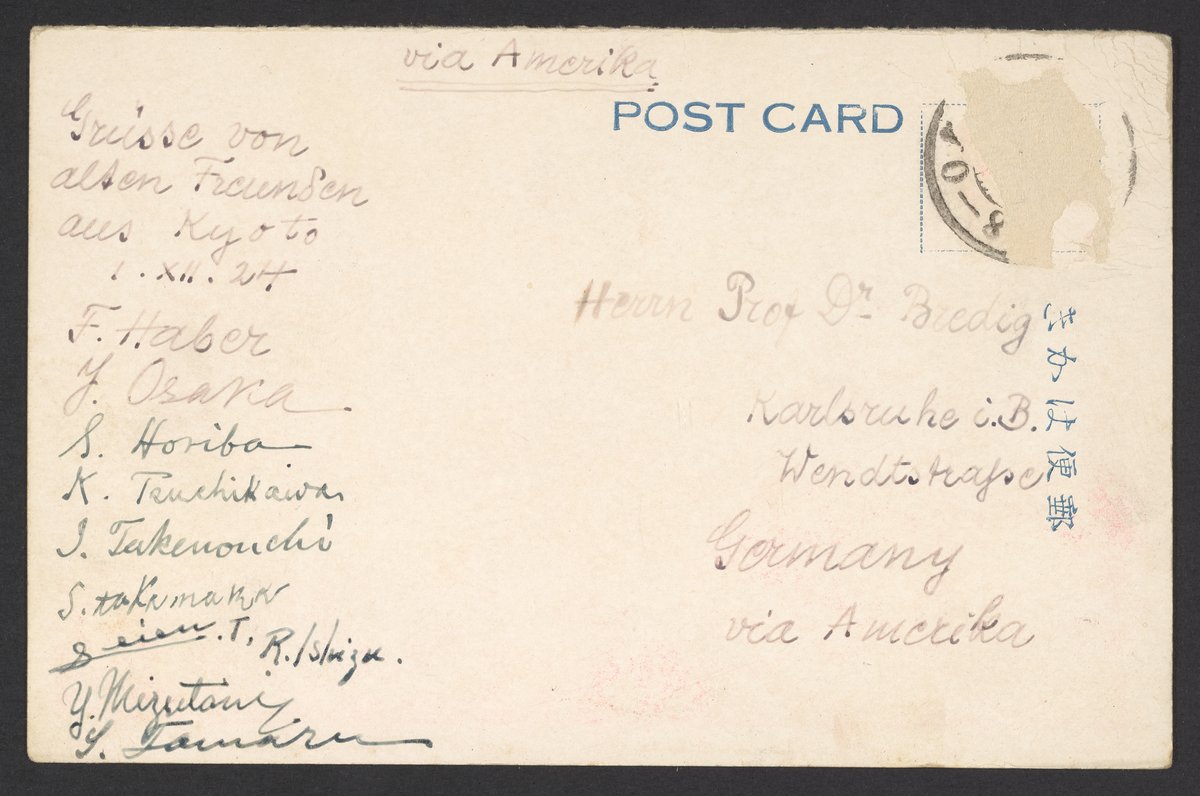 via Amerika
POST CARD
Grüsse von
alten Freunden
aus Kyoto
1. XII. 24
F. Haber
Y. Osaka
S. Horiba
K. Tsuchikawa
I. Takenouchi
S. takamara
Seien. T.
R. Ishizu.
Y. Mizutani
S. Tamaru
Herrn Prof Dr. Bredig
Karlsruhe i. B.
Wendtstraße
Germany
via Amerika
郵便はかき